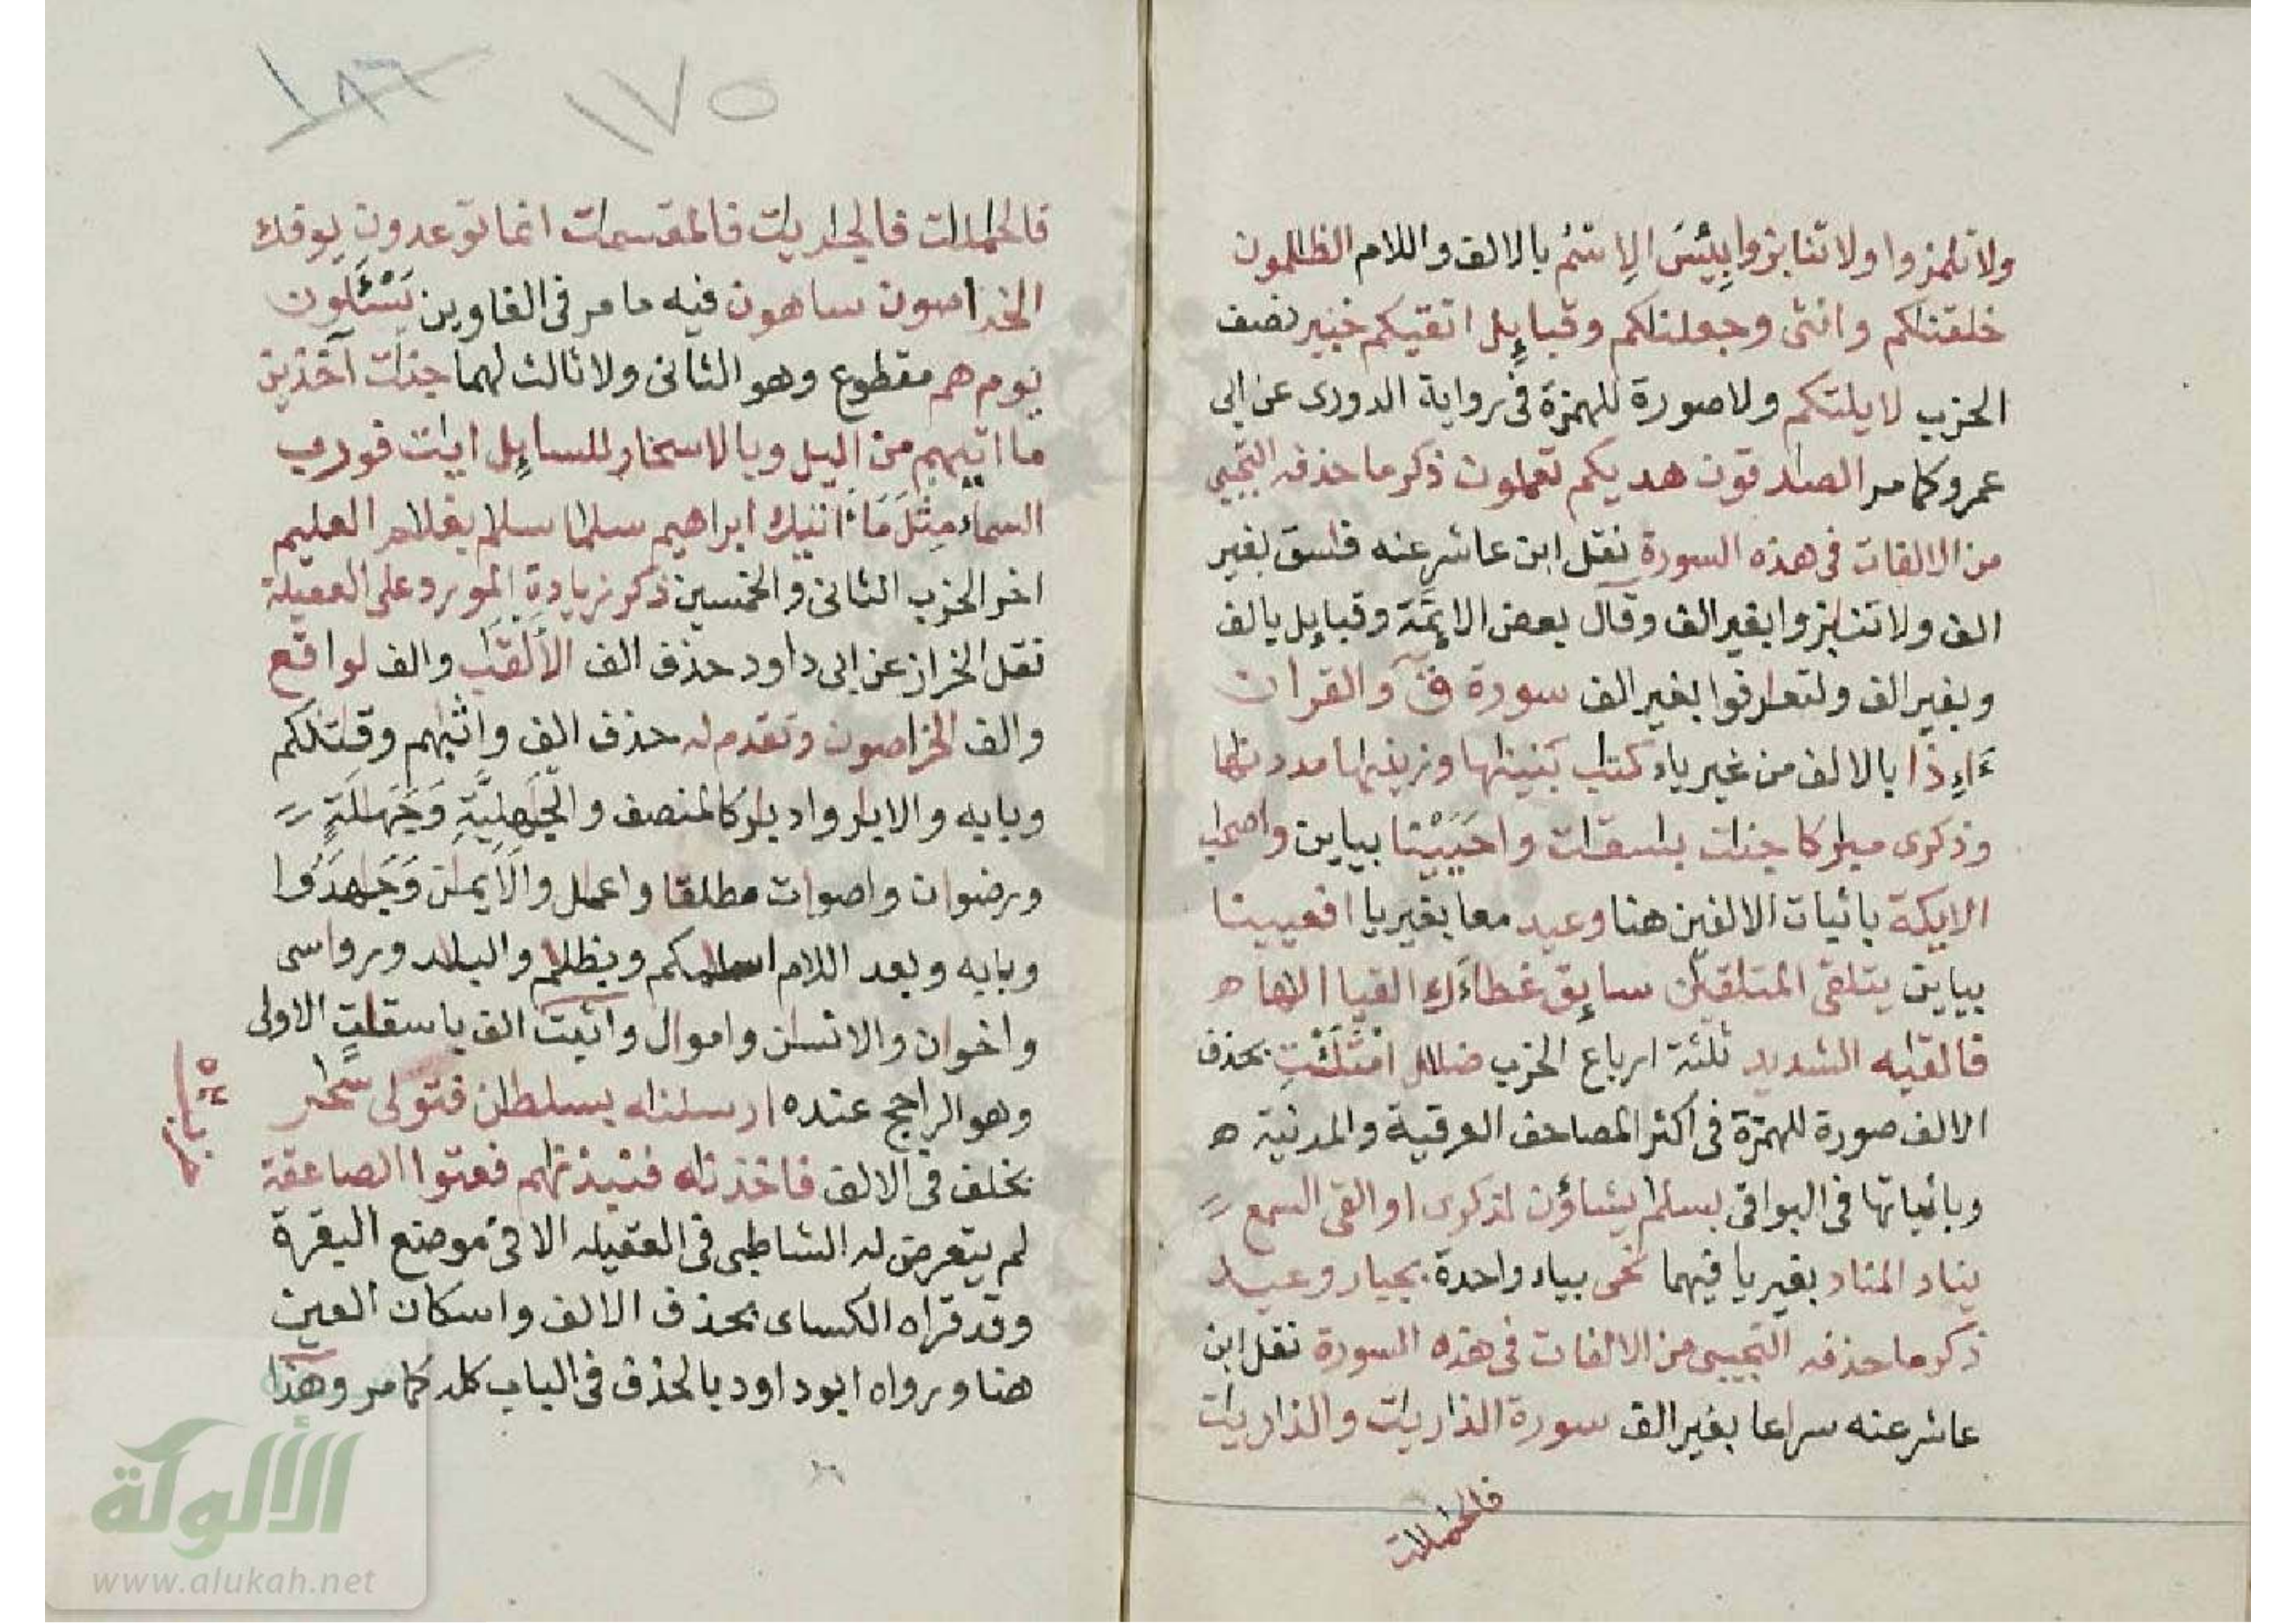 ولا تلمزوا ولا تنابزوا بِئْسَ الِاسْمُ بالالف واللام الظلمون
خلقنكم وانثى وجعلنكم وقبايِٕل اتقيكم خبير نصف
الحزب لا يلتكم ولا صورة للهمزة فى رواية الدورى عن ابى
عمرو كما مر الصادقون هديكم تعملون ذكر ما حذفه التجيبى
من الالفات فى هذه السورة نقل ابن عاشر عنه فاسق بغير
الف ولا تنابزوا بغير الف وقال بعض الايمة وقبايل بالف
وبغير الف ولتعارفوا بغير الف سورة قٓ والقرآن
ءَاِذا بالالف من غير ياء كتاب بنينها وزينها مددنها
وذكرى مباركا جنات باسقات واحْيَيْنا بياين واصحاب
الايكة باثبات الالفين هنا وعيد معا بغير يا افعيينا
بياين يتلقى المتلقين سايق غطاءك القيا الاها ه
فالقيه الشديد ثلثة ارباع الحزب ضلال امْتَلَئْتِ بحذف
الالف صورة للهمزة فى اكثر المصاحف العرقية والمدنية ه
وباثباتها فى البواقى بسلم يشاؤن لذكرى او القى السمع
يناد المناد بغير يا فيهما نحى بياء واحدة بجبار وعيد
ذكر ما حذفه التجيبى من الالفات فى هذه السورة نقل ابن
عاشر عنه سراعا بغير الف سورة الذاريات والذاريات
فالحملات
١٧٥
١٨٦
فالحاملات فالجاريات فالمقسمات انما توعدون يوفك
الخراصون ساهون فيه ما مر فى الغاوين يَسْئَلون
يوم هم مقطوع وهو الثانى ولا ثالث لهما جنات آخذين
ما اتيهم من اليل وبالاسحار للسايل ايات فورب
السماء مِثْلَ مَا اتيك ابراهيم سلما سلم بغلام العليم
اخر الحزب الثانى والخمسين ذكر زيادة المورد على العقيلة
نقل الخراز عن ابى داود حذف الف الألقاب والف لواقع
والف الخراصون وتقدم له حذف الف واثبهم وقتلكم
وبابه والابار وادبار كالمنصف والجهليَّةِ وَجَهالَةٍ
ورضوان واصوات مطلقا واعمال والايمان وَجَاهَدُوا
وبابه وبعد اللام اسلامكم وبظلام والبلاد ورواسى
واخوان والانسان واموال واثبت الف باسقاتٍ الاولى
وهو الراجح عنده ارسلناه بسلطان فتولى سحر
بخلف فى الالف فاخذناه فنبذنهم فعتوا الصاعقة
لم يتعرض له الشاطبى فى العقيله الا فى موضع البقرة
وقد قراه الكساى بحذف الالف واسكان العين
هنا ورواه ابو داود بالحذف فى الباب كله كما مر وهذا
الألوكة
www.alukah.net